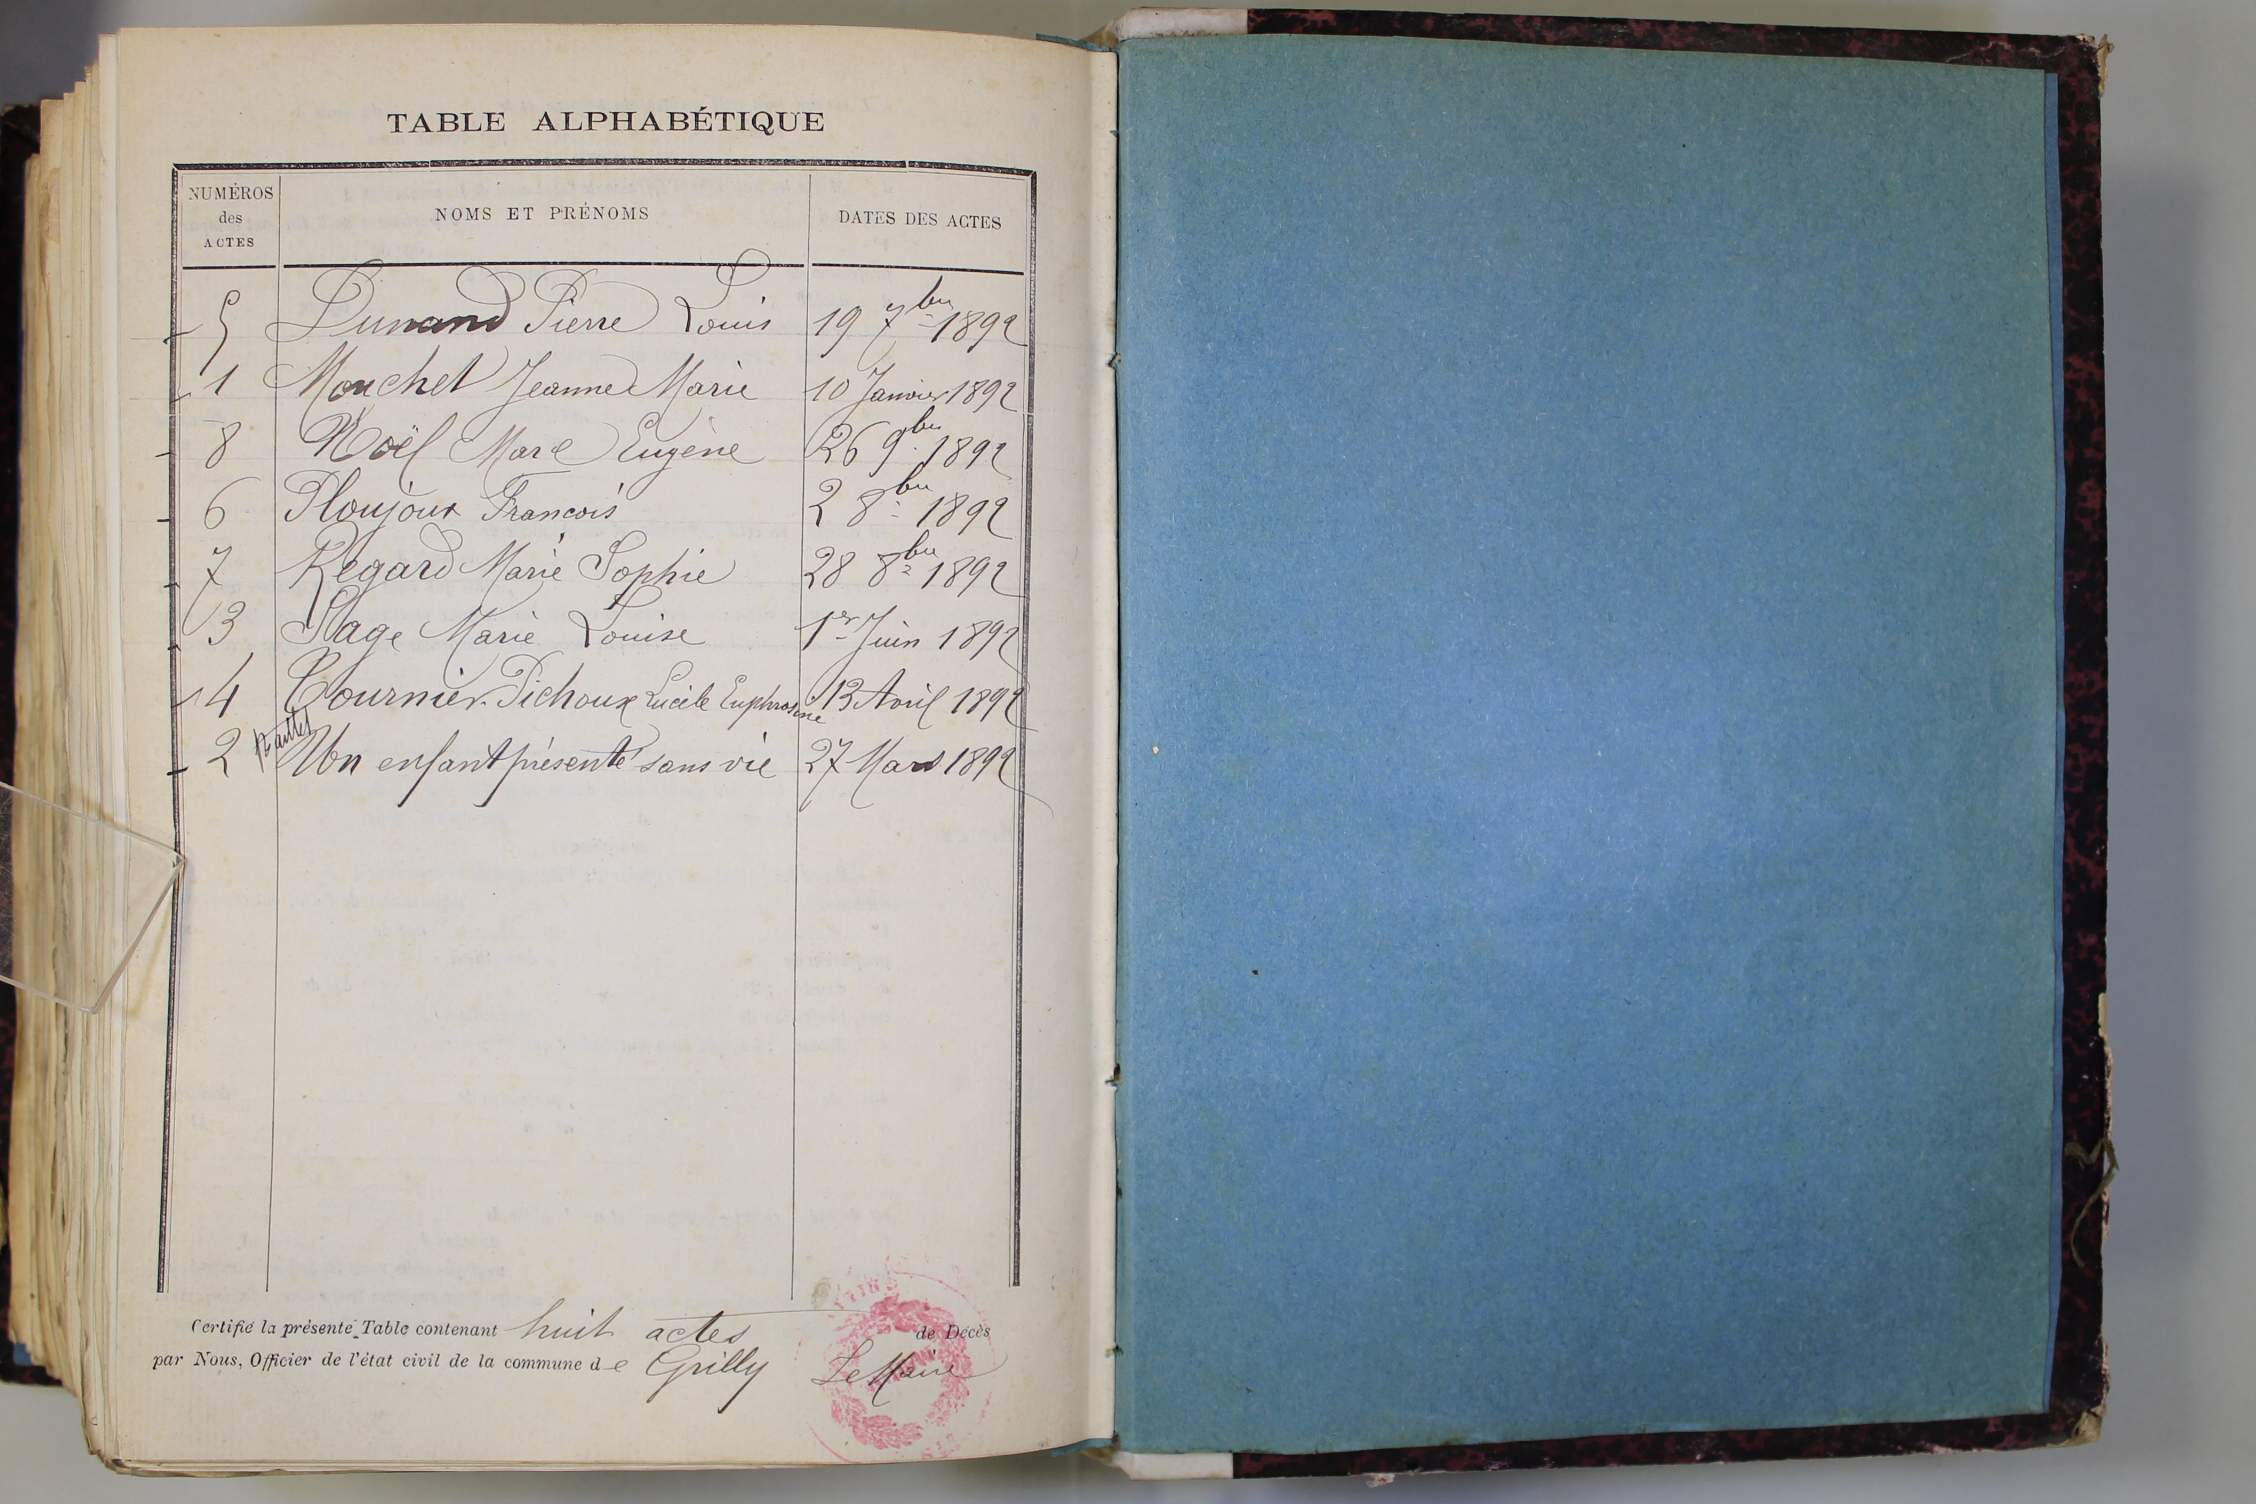 TABLE ALPHABÉTIQUE
NUMÉROS des ACTES NOMS ET PRÉNOMS DATES DES ACTES
5 Dunand Pierre Louis 19 7bre 1892
1 Mouchet Jeanne Marie 10 Janvier 1892
8 Noël Marc Eugène 26 9bre 1892
6 Ploujoux Francois 2 8bre 1892
7 Regard Marie Sophie 28 8bre 1892
3 Sage Marie Louise 1er Juin 1892
4 Tournier-Pichoux Lucile Euphrosine 13 Avril 1892
2 Un enfant présenté sans vie 27 Mars 1892
Certifié la présente Table contenant huit actes de Décès
par Nous, Officier de l'état civil de la commune de Grilly Le Maire